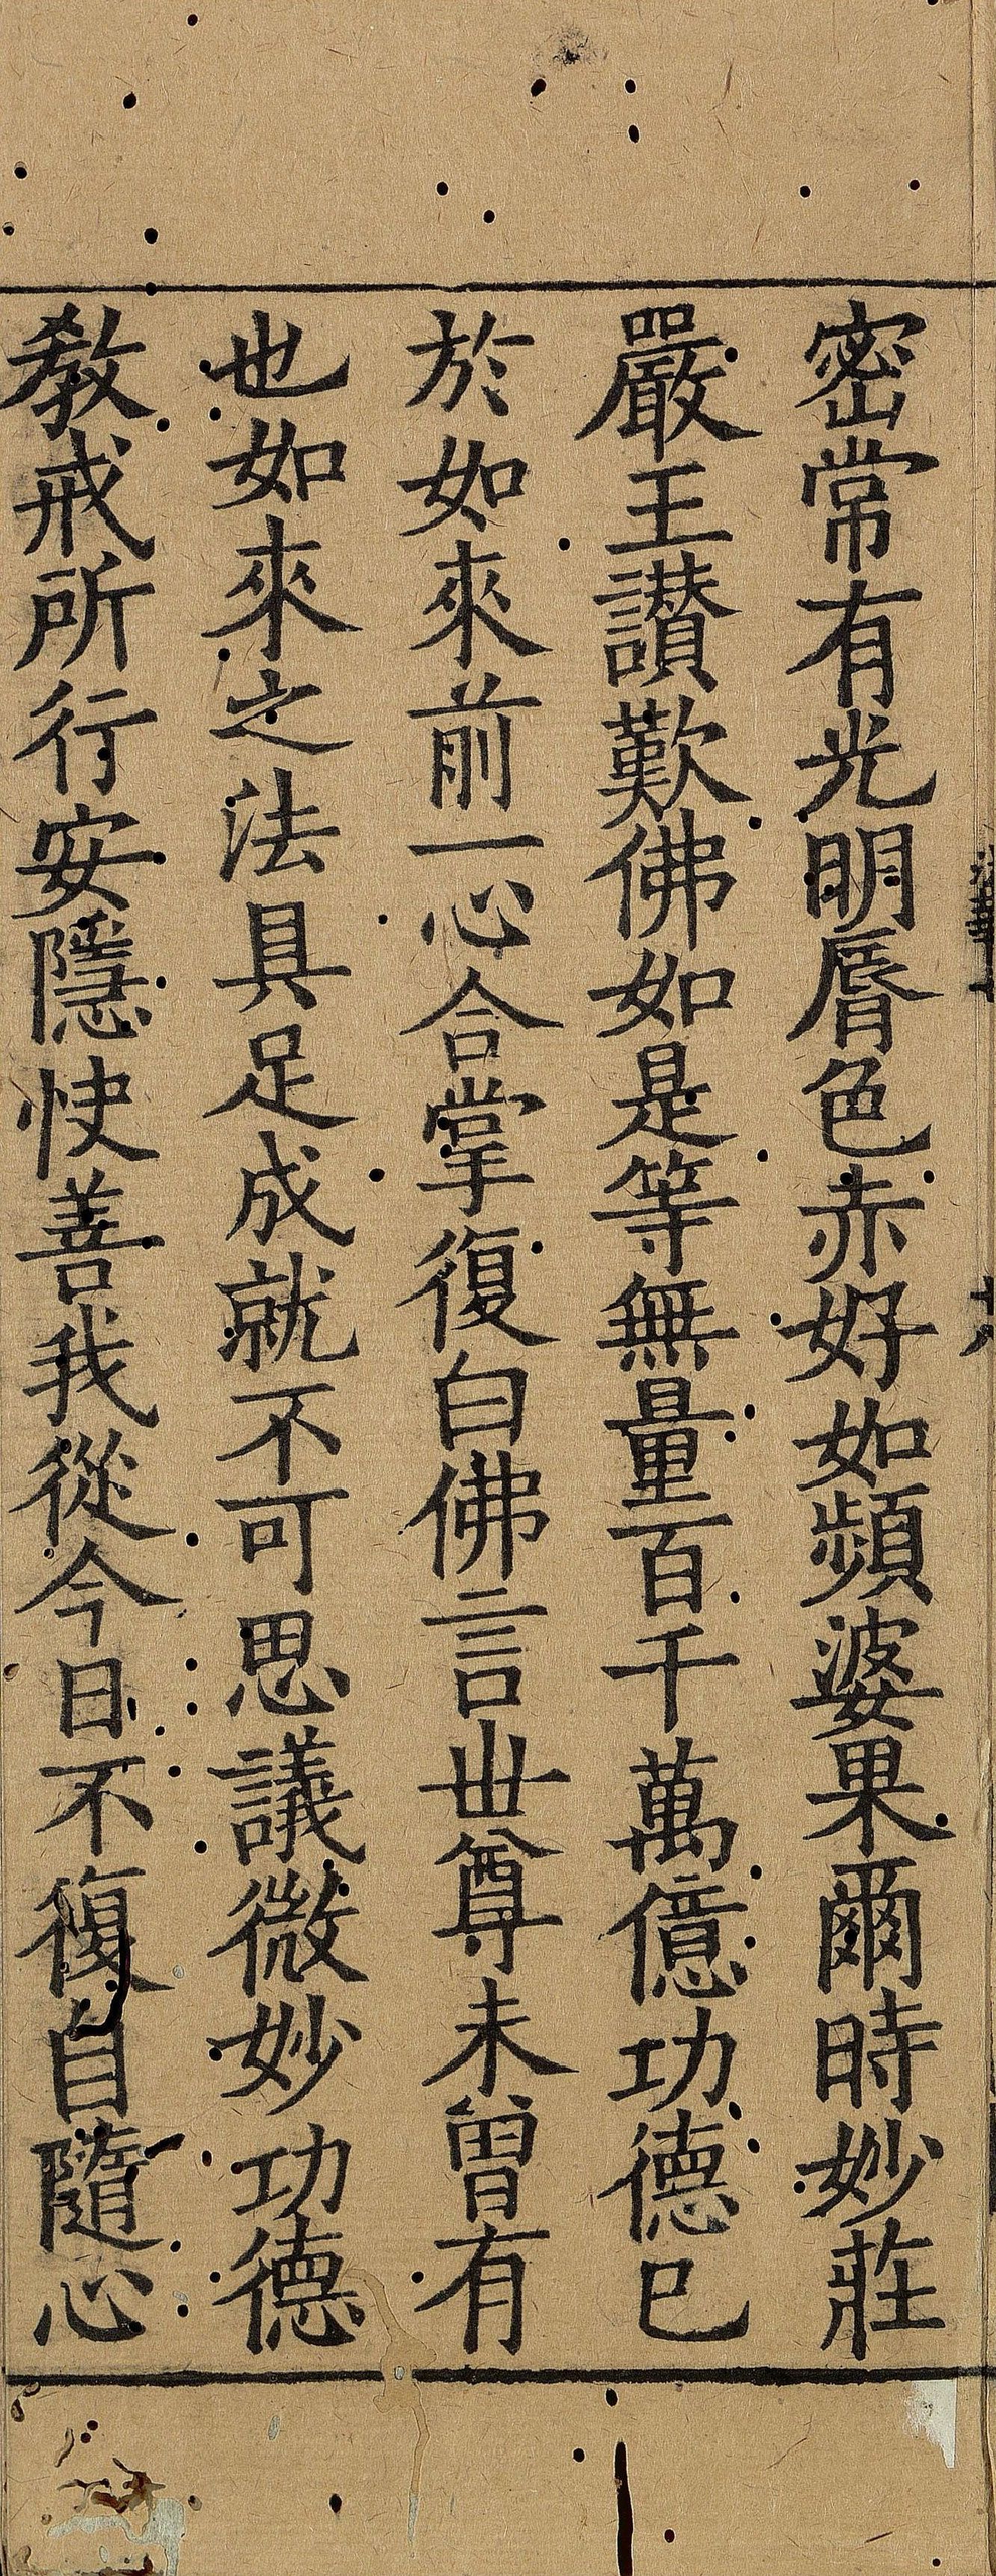 密常有光明脣色赤好如頻婆果爾時妙莊
嚴王讃歎佛如是等無量百千萬億功德已
於如來前一心合掌復白佛言世尊未曾有
也如來之法具足成就不可思議微妙功德
教戒所行安隱快善我從今日不復自隨心